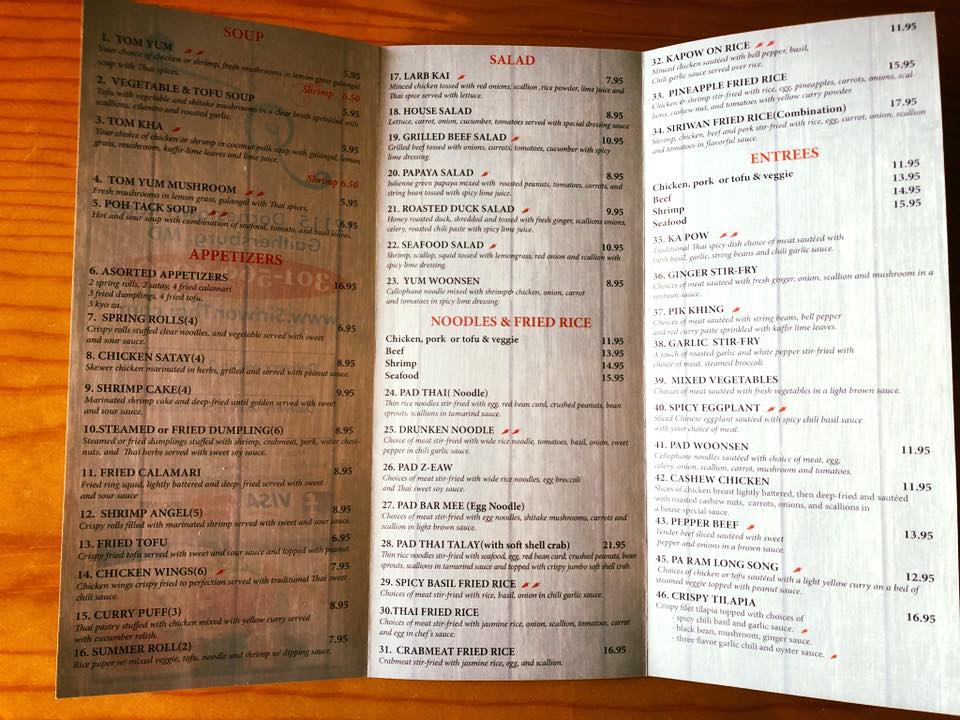 SOUP
1. TOM YUM
Your choice of chicken or shrimp, fresh mushrooms in lemon grass, galangal
soup with Thai spices. 5.95
Shrimp 6.50
2. VEGETABLE & TOFU SOUP
Tofu with vegetable and shitake mushrooms in a clear broth sprinkled with
scallions, cilantro and roasted garlic. 5.95
3. TOM KHA 5.95
Your choice of chicken or shrimp in coconut milk soup with galangal, lemon
grass, mushroom, kaffir-lime leaves and lime juice.
Shrimp 6.50
4. TOM YUM MUSHROOM
Fresh mushrooms in lemon grass, galangal with Thai spices. 5.95
5. POH TACK SOUP 6.95
Hot and sour soup with combination of seafood, tomato, and basil leaves.
APPETIZERS
6. ASORTED APPETIZERS
2 spring rolls, 2 satay, 4 fried calamari 16.95
3 fried dumplings, 4 fried tofu,
3 kyo za,
7. SPRING ROLLS(4) 6.95
Crispy rolls stuffed clear noodles, and vegetable served with sweet
and sour sauce.
8. CHICKEN SATAY(4) 8.95
Skewer chicken marinated in herbs, grilled and served with peanut sauce.
9. SHRIMP CAKE(4) 9.95
Marinated shrimp cake and deep-fried until golden served with sweet
and sour sauce.
10.STEAMED or FRIED DUMPLING(6) 8.95
Steamed or fried dumplings stuffed with shrimp, crabmeat, pork, water chest-
nuts, and Thai herbs served with sweet soy sauce.
11. FRIED CALAMARI 8.95
Fried ring squid, lightly battered and deep- fried served with sweet
and sour sauce
12. SHRIMP ANGEL(5) 8.95
Crispy rolls filled with marinated shrimp served with sweet and sour sauce.
13. FRIED TOFU 6.95
Crispy fried tofu served with sweet and sour sauce and topped with peanut.
14. CHICKEN WINGS(6) 7.95
Chicken wings crispy fried to perfection served with traditional Thai sweet
chili sauce.
15. CURRY PUFF(3) 8.95
Thai pastry stuffed with chicken mixed with yellow curry served
with cucumber relish.
16. SUMMER ROLL(2) 7.95
Rice paper w/ mixed veggie, tofu, noodle and shrimp w/ dipping sauce.
Gaithersburg, MD
VISA
SALAD
17. LARB KAI 7.95
Minced chicken tossed with red onions, scallion ,rice powder, lime juice and
Thai spice served with lettuce.
18. HOUSE SALAD 8.95
Lettuce, carrot, onion, cucumber, tomatoes served with special dressing sauce
19. GRILLED BEEF SALAD 10.95
Grilled beef tossed with onions, carrots, tomatoes, cucumber with spicy
lime dressing.
20. PAPAYA SALAD 8.95
Julienne green papaya mixed with roasted peanuts, tomatoes, carrots, and
string bean tossed with spicy lime juice.
21. ROASTED DUCK SALAD 9.95
Honey roasted duck, shredded and tossed with fresh ginger, scallions onions,
celery, roasted chili paste with spicy lime juice.
22. SEAFOOD SALAD 10.95
Shrimp, scallop, squid tossed with lemongrass, red onion and scallion with
spicy lime dressing.
23. YUM WOONSEN 8.95
Cellophane noodle mixed with shrimp& chicken, onion, carrot
and tomatoes in spicy lime dressing.
NOODLES & FRIED RICE
Chicken, pork or tofu & veggie 11.95
Beef 13.95
Shrimp 14.95
Seafood 15.95
24. PAD THAI( Noodle)
Thin rice noodles stir-fried with egg, red bean curd, crushed peanuts, bean
sprouts, scallions in tamarind sauce.
25. DRUNKEN NOODLE
Choice of meat stir-fried with wide rice noodle, tomatoes, basil, onion, sweet
pepper in chili garlic sauce.
26. PAD Z-EAW
Choices of meat stir-fried with wide rice noodles, egg broccoli
and Thai sweet soy sauce.
27. PAD BAR MEE (Egg Noodle)
Choices of meat stir-fried with egg noodles, shitake mushrooms, carrots and
scallion in light brown sauce.
28. PAD THAI TALAY(with soft shell crab) 21.95
Thin rice noodles stir-fried with seafood, egg, red bean curd, crushed peanuts, bean
sprouts, scallions in tamarind sauce and topped with crispy jumbo soft shell crab.
29. SPICY BASIL FRIED RICE
Choices of meat stir-fried with rice, basil, onion in chili garlic sauce.
30.THAI FRIED RICE
Choices of meat stir-fried with jasmine rice, onion, scallion, tomatoes, carrot
and egg in chef's sauce.
31. CRABMEAT FRIED RICE 16.95
Crabmeat stir-fried with jasmine rice, egg, and scallion.
32. KAPOW ON RICE 11.95
Minced chicken sautéed with bell pepper, basil,
Chili garlic sauce served over rice.
33. PINEAPPLE FRIED RICE 15.95
Chicken & shrimp stir-fried with rice, egg, pineapples, carrots, onions, scal-
lions, cashew nut, and tomatoes with yellow curry powder.
34. SIRIWAN FRIED RICE(Combination) 17.95
Shrimp, chicken, beef and pork stir-fried with rice, egg, carrot, onion, scallion
and tomatoes in flavorful sauce.
ENTREES
Chicken, pork or tofu & veggie 11.95
Beef 13.95
Shrimp 14.95
Seafood 15.95
35. KA POW
Traditional Thai spicy dish choice of meat sautéed with
fresh basil, garlic, string beans and chili garlic sauce.
36. GINGER STIR-FRY
Choices of meat sautéed with fresh ginger, onion, scallion and mushroom in a
soybean sauce.
37. PIK KHING
Choices of meat sautéed with string beans, bell pepper
and red curry paste sprinkled with kaffir lime leaves.
38. GARLIC STIR-FRY
A touch of roasted garlic and white pepper stir-fried with
choice of meat, steamed broccoli.
39. MIXED VEGETABLES
Choices of meat sautéed with fresh vegetables in a light brown sauce.
40. SPICY EGGPLANT
Sliced Chinese eggplant sautéed with spicy chili basil sauce
with your choice of meat.
41. PAD WOONSEN 11.95
Cellophane noodles sautéed with choice of meat, egg,
celery, onion, scallion, carrot, mushroom and tomatoes.
42. CASHEW CHICKEN 11.95
Slices of chicken breast lightly battered, then deep-fried and sautéed
with roasted cashew nuts, carrots, onions, and scallions in
a house special sauce.
43. PEPPER BEEF 13.95
Tender beef sliced sautéed with sweet
pepper and onions in a brown sauce.
45. PA RAM LONG SONG 12.95
Choices of chicken or tofu sautéed with a light yellow curry on a bed of
steamed veggie topped with peanut sauce.
46. CRISPY TILAPIA 16.95
Crispy filet tilapia topped with choices of
· spicy chili basil and garlic sauce.
· black bean, mushroom, ginger sauce.
· three flavor garlic chili and oyster sauce.